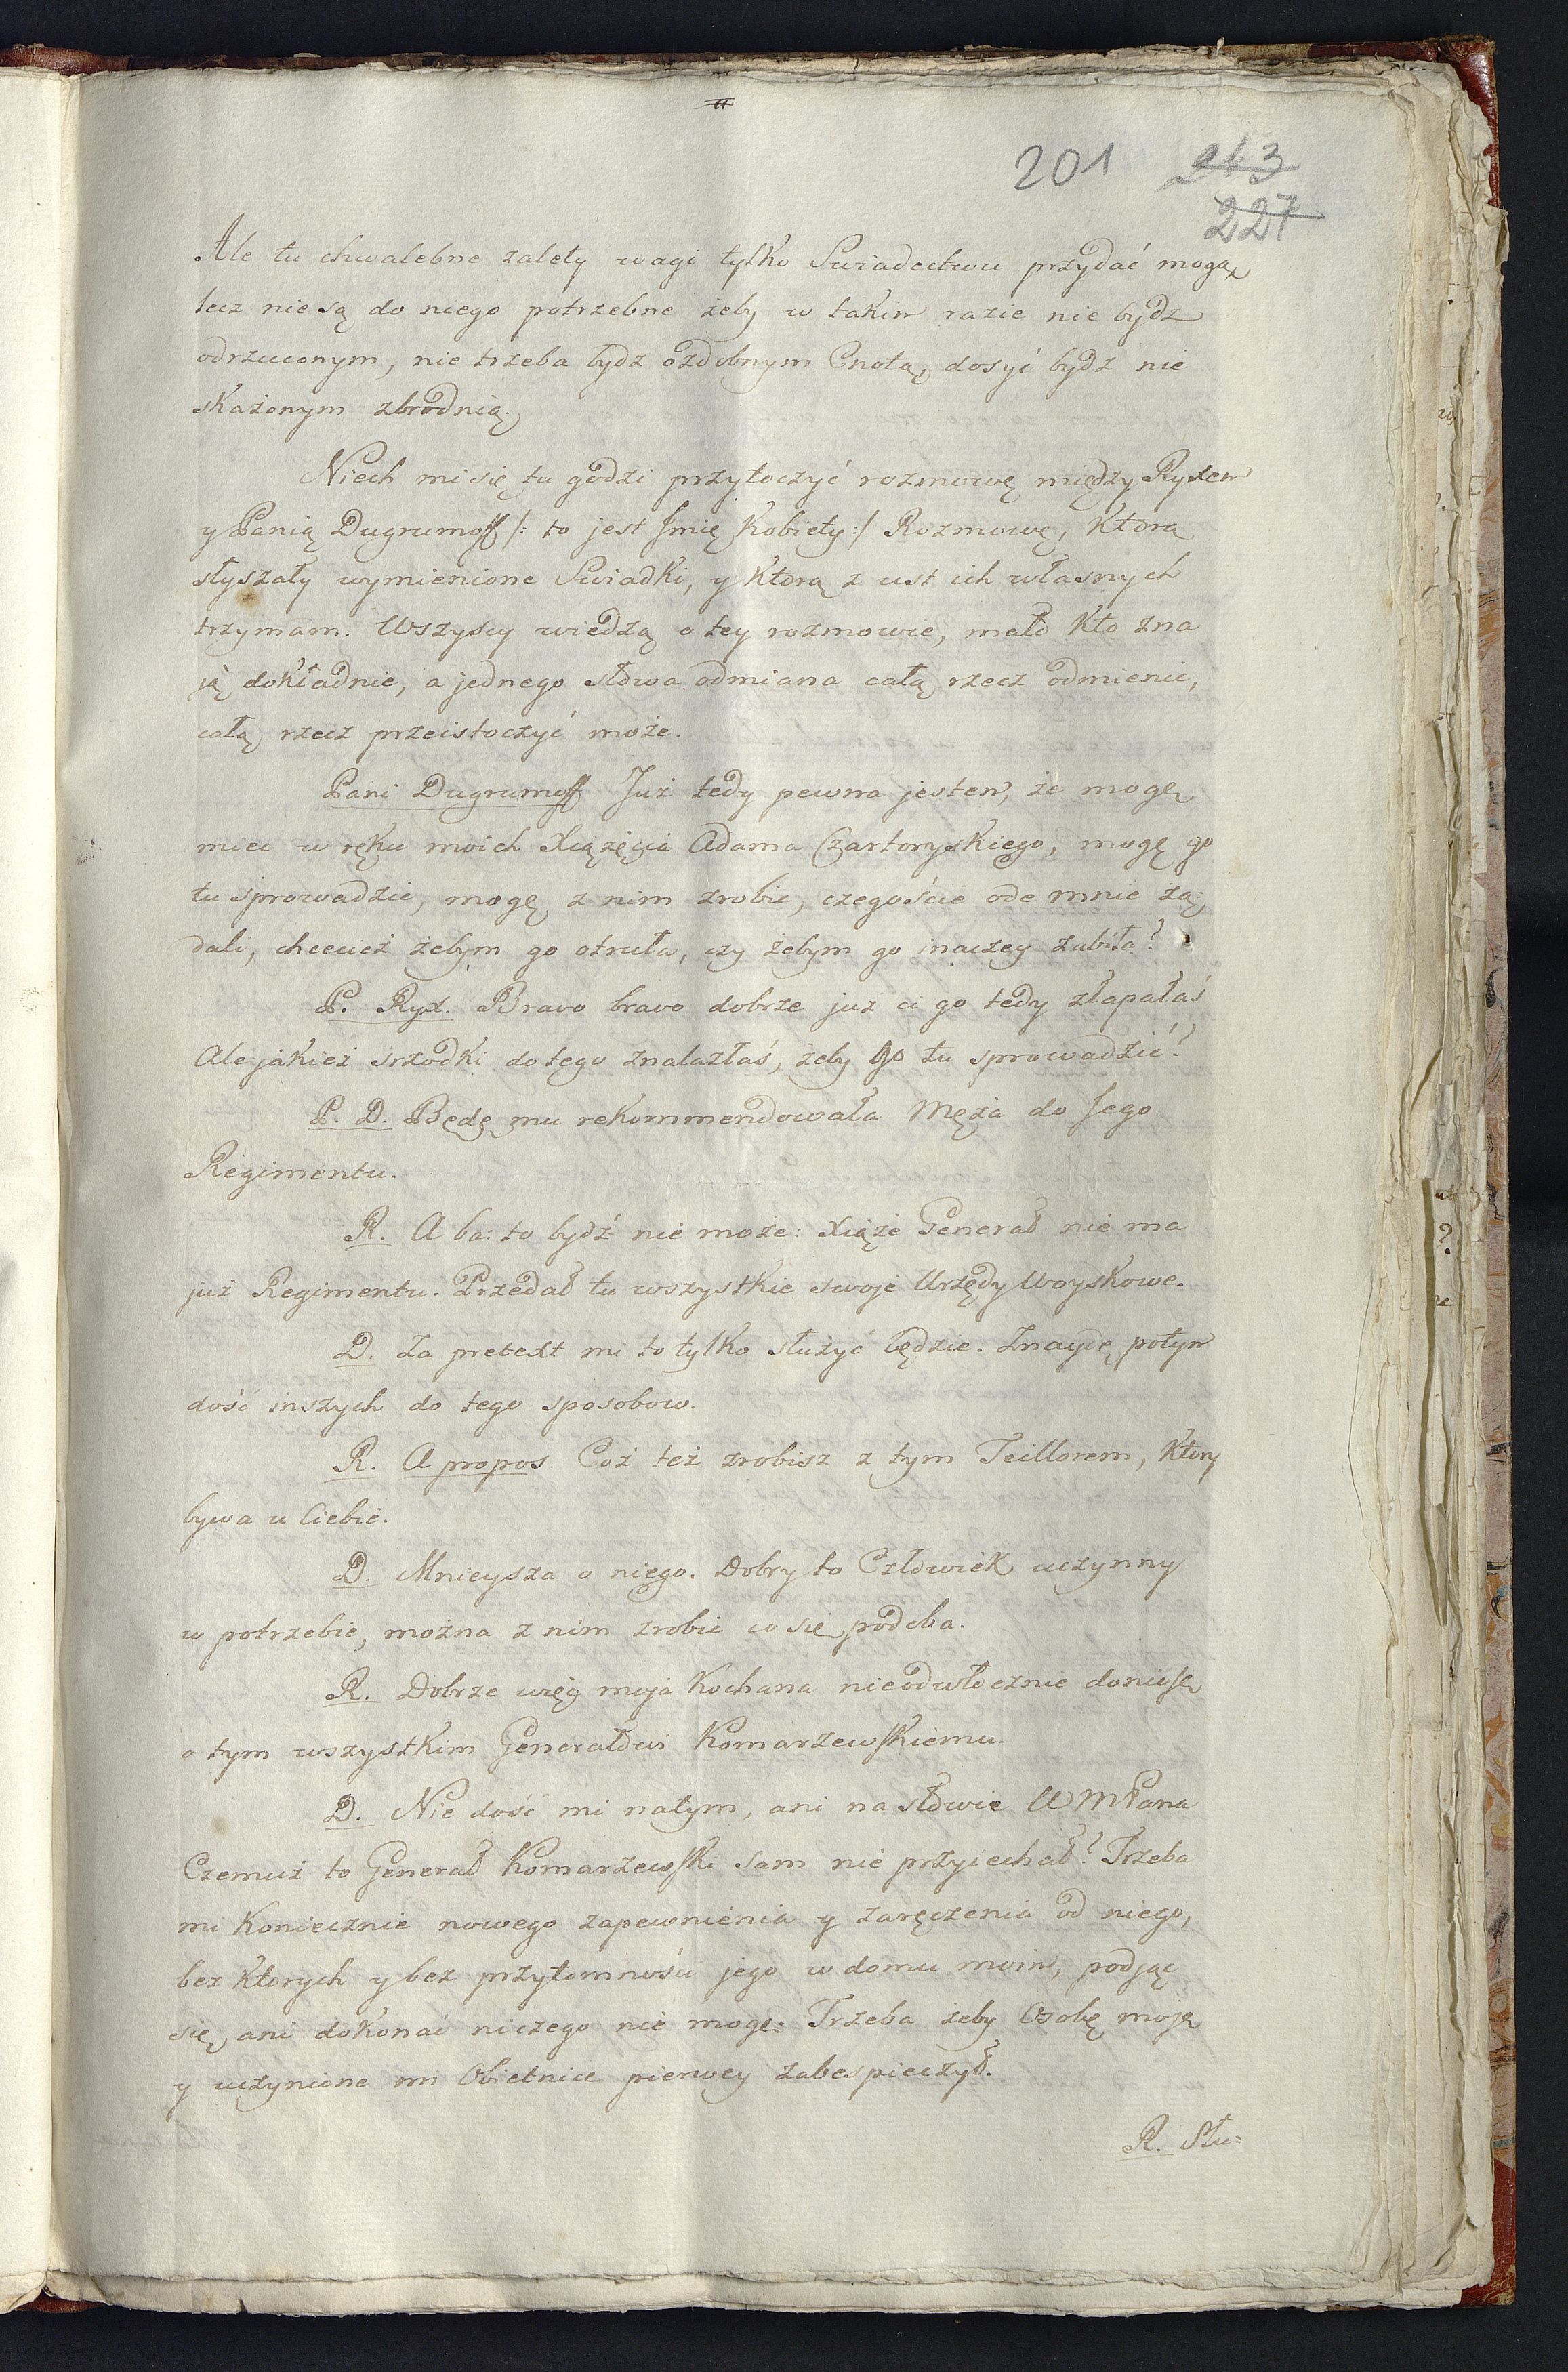 201 243
227
Ale tu chwalebne zalety wagi tylko Swiadectwu przydać mogą,
lecz nie są do niego potrzebne żeby w takim razie nie bydz
odrzuconym, nie trzeba bydz ozdobnym Cnotą, dosyć bydz nie
skażonym zbrodnią.
Niech mi się tu godzi przytoczyć rozmowę między Ryxem
y Panią Dugrumoff /: to jest Jmię Kobiety :/ Rozmowę, Ktorą
słyszały wymienione Swiadki, y Ktorą z ust ich własnych
trzymam. Wszyscy wiedzą o tey rozmowie, mało Kto zna
ją dokładnie, a jednego słowa odmiana całą rzecz odmienic,
całą rzecz przeistoczyć może.
Pani Dugrumoff Już tedy pewna jestem, że mogę
miec w ręku moich Xiążęcia Adama Czartoryskiego, mogę go
tu sprowadzic, mogę z nim zrobic, czegoście ode mnie żą:
dali, chcecież żebym go otruła, czy żebym go inaczey zabiła?
P. Ryx. Bravo bravo dobrze już ci go tedy złapałaś
Ale jakież srzodki do tego znalazłaś, żeby go tu sprowadzić?
P. D. Będę mu rekommendowała Męża do Jego
Regimentu.
R. A ba: to bydź nie może: Xiąże Generał nie ma
już Regimentu. Przedał tu wszystkie swoje Urzędy Woyskowe.
D. Za pretext mi to tylko służyć będzie. Znaydę potym
dość inszych do tego sposobow.
R. A propos. Coż też zrobisz z tym Teillorem, Ktory
bywa u Ciebie.
D. Mnieysza o niego. Dobry to Człowiek uczynny
w potrzebie, można z nim zrobic co się podoba.
R. Dobrze więc moja Kochana nieodwłocznie doniosę
o tym wszystkim Generałowi Komarzewskiemu.
D. Nie dość mi natym, ani na słowie WMPana
Czemuż to Generał Komarzewski sam nie przyiechał? Trzeba
mi Koniecznie nowego zapewnienia y zaręczenia od niego,
bez Ktorych y bez przytomnośu jego w domu moim, podjąc
się, ani dokonac niczego nie mogę: Trzeba żeby Osobę moję
y uczynione mi Obietnice pierwey zabespieczył.
R. Słu=